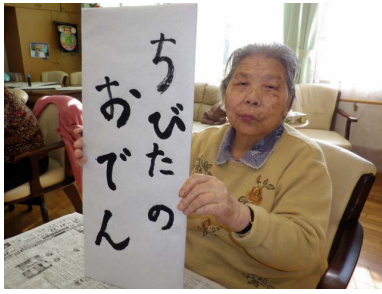 ちびたの
おでん